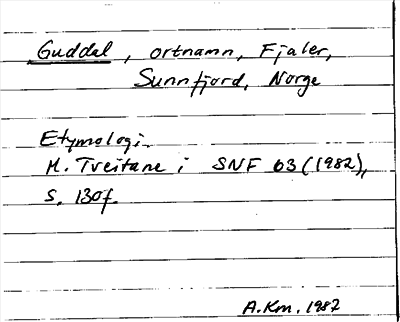 Guddal, ortnamn, Fjaler,
Sunnfjord, Norge
Etymologi.
M. Tveitane i SNF 63 (1982),
s. 130f.
A.Km. 1987